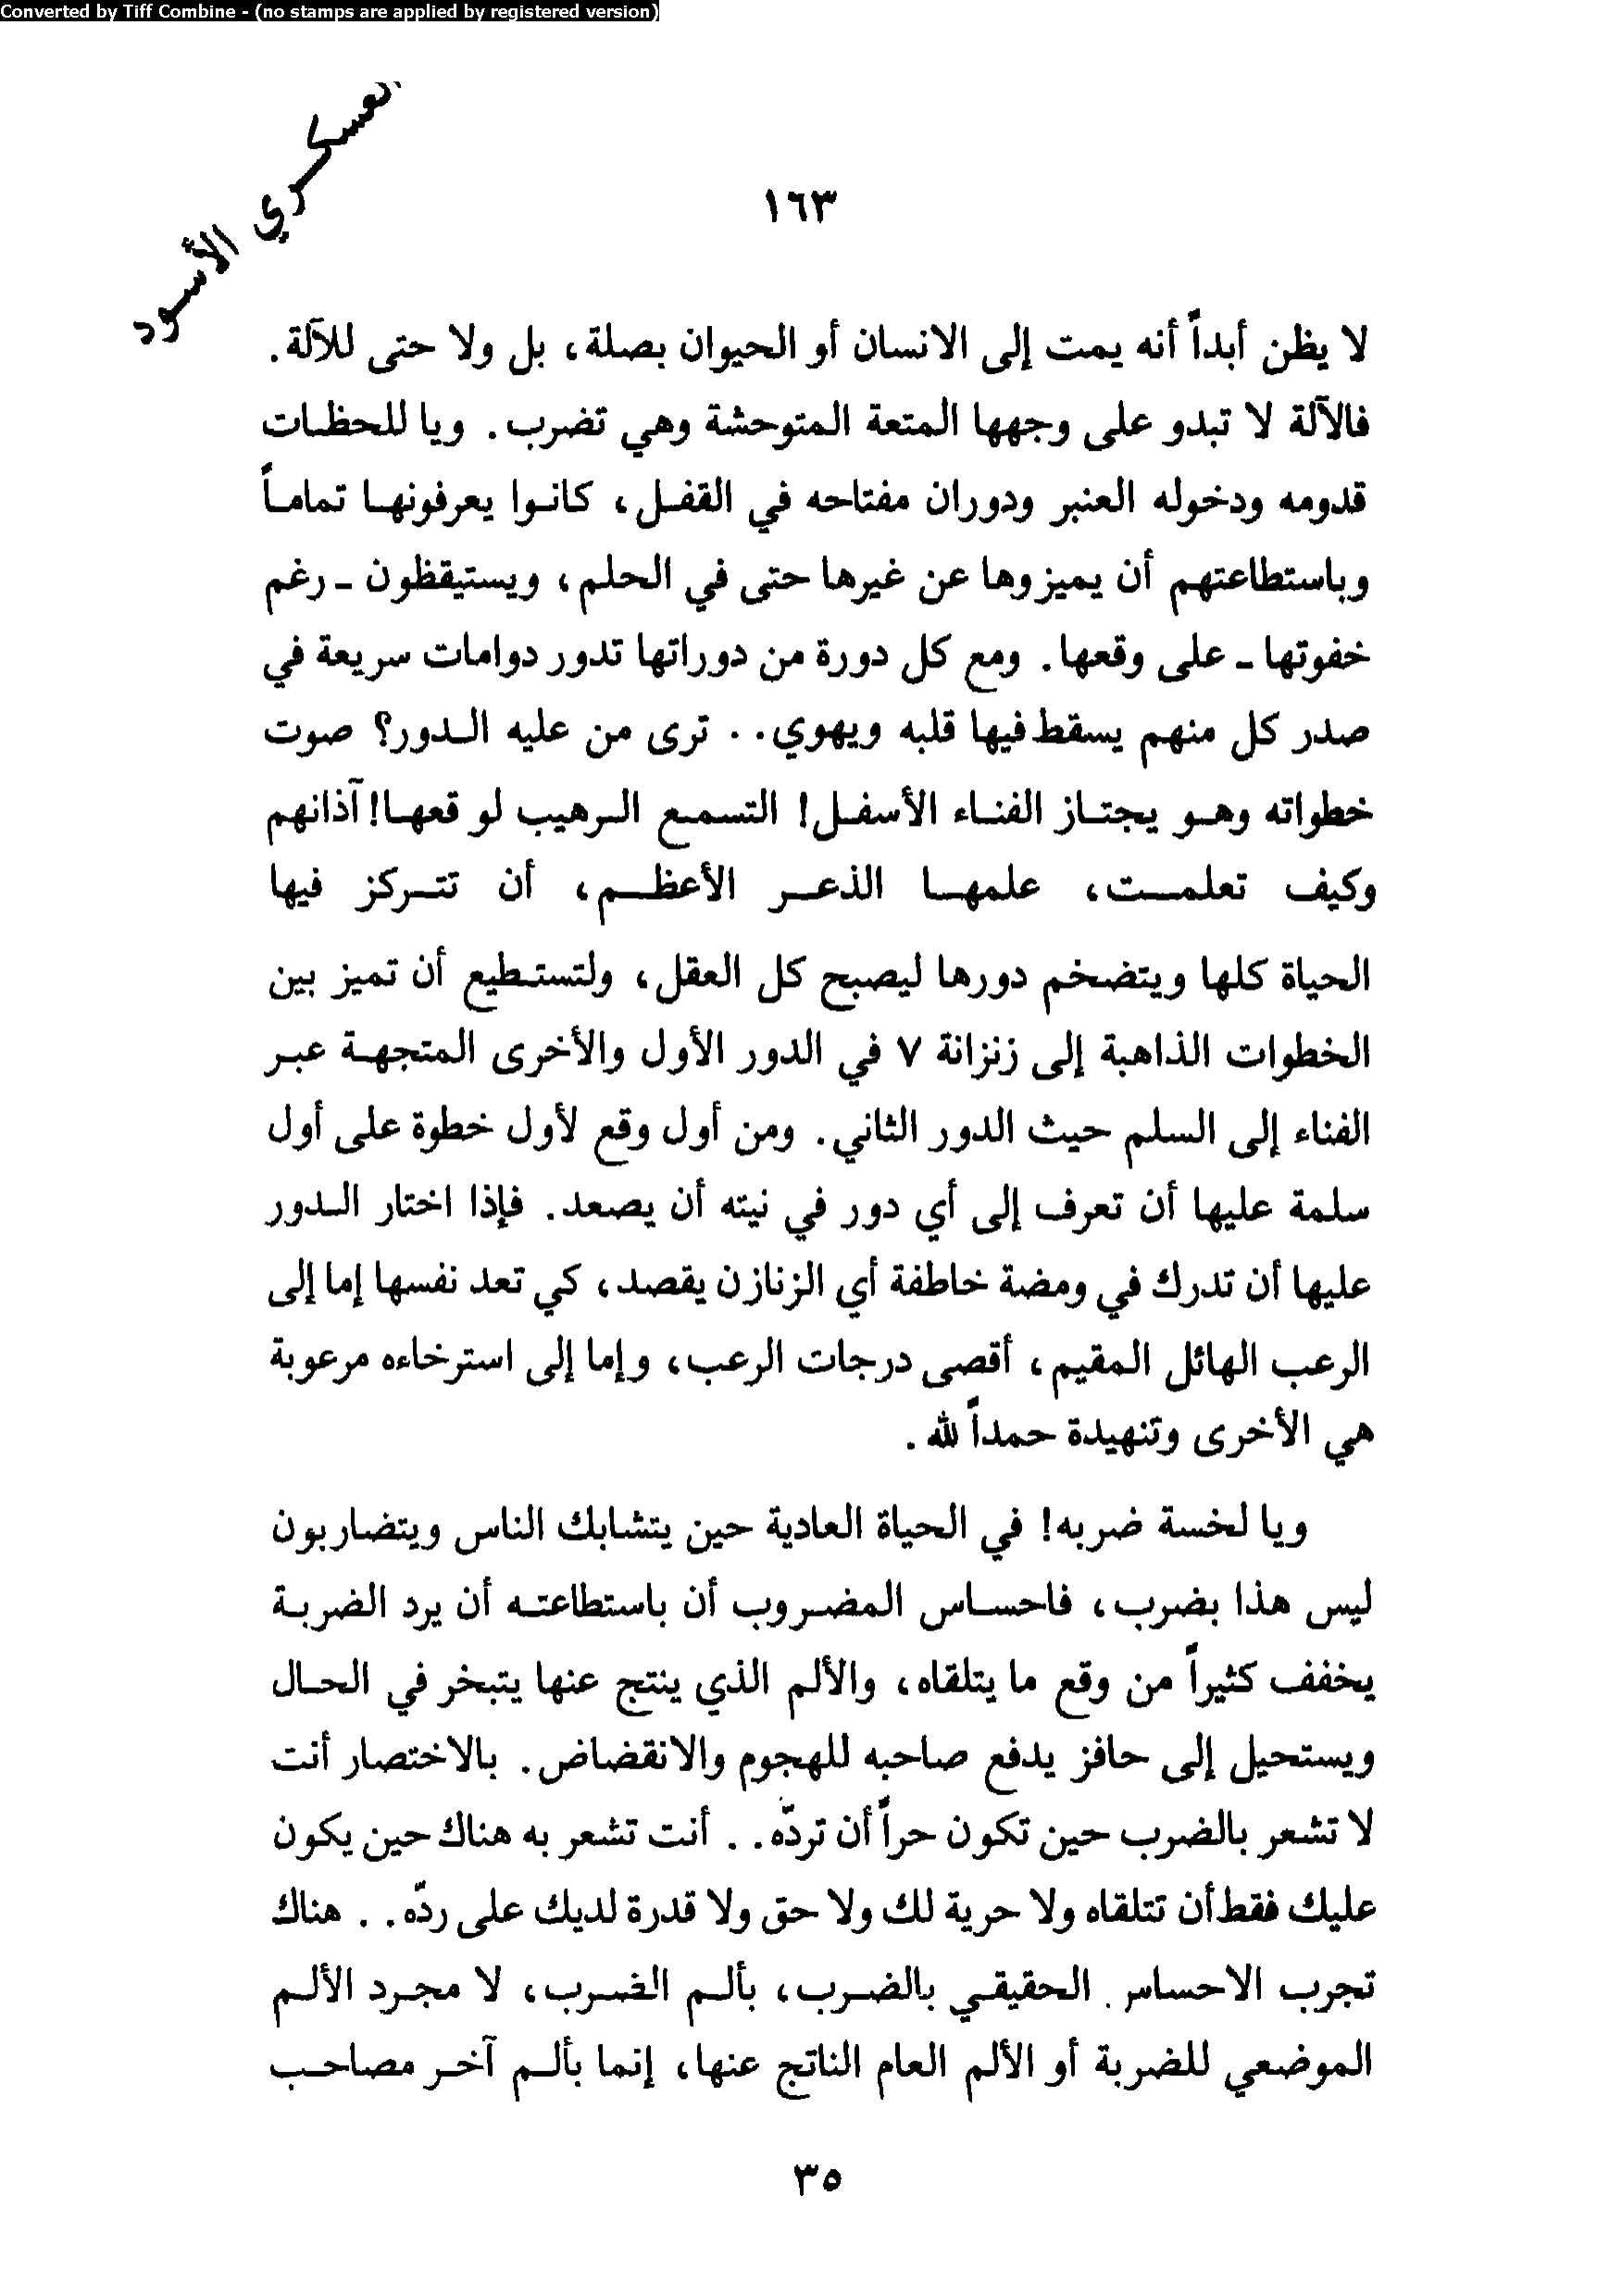 Converted by Tiff Combine - (no stamps are applied by registered version)
العسكري الأسود
١٦٣
لا يظن أبداً أنه يمت إلى الانسان أو الحيوان بصلة، بل ولا حتى للآلة.
فالآلة لا تبدو على وجهها المتعة المتوحشة وهي تضرب. ويا للحظات
قدومه ودخوله العنبر ودوران مفتاحه في القفل، كانوا يعرفونها تماماً
وباستطاعتهم أن يميزوها عن غيرها حتى في الحلم، ويستيقظون ـ رغم
خفوتها ـ على وقعها. ومع كل دورة من دوراتها تدور دوامات سريعة في
صدر كل منهم يسقط فيها قلبه ويهوي.. ترى من عليه الدور؟ صوت
خطواته وهو يجتاز الفناء الأسفل! التسمع الرهيب لو قعها! آذانهم
وكيف تعلمت، علمها الذعر الأعظم، أن تتركز فيها
الحياة كلها ويتضخم دورها ليصبح كل العقل، ولتستطيع أن تميز بين
الخطوات الذاهبة إلى زنزانة ٧ في الدور الأول والأخرى المتجهة عبر
الفناء إلى السلم حيث الدور الثاني. ومن أول وقع لأول خطوة على أول
سلمة عليها أن تعرف إلى أي دور في نيته أن يصعد. فإذا اختار الدور
عليها أن تدرك في ومضة خاطفة أي الزنازن يقصد، كي تعد نفسها إما إلى
الرعب الهائل المقيم، أقصى درجات الرعب، وإما إلى استرخاءه مرعوبة
هي الأخرى وتنهيدة حمداً لله.
ويا لخسة ضربه! في الحياة العادية حين يتشابك الناس ويتضاربون
ليس هذا بضرب، فاحساس المضروب أن باستطاعته أن يرد الضربة
يخفف كثيراً من وقع ما يتلقاه، والألم الذي ينتج عنها يتبخر في الحال
ويستحيل إلى حافز يدفع صاحبه للهجوم والانقضاض. بالاختصار أنت
لا تشعر بالضرب حين تكون حراً أن تردّه.. أنت تشعر به هناك حين يكون
عليك فقط أن تتلقاه ولا حرية لك ولا حق ولا قدرة لديك على ردّه.. هناك
تجرب الاحساس الحقيقي بالضرب، بألم الضرب، لا مجرد الألم
الموضعي للضربة أو الألم العام الناتج عنها، إنما بألم آخر مصاحب
٣٥